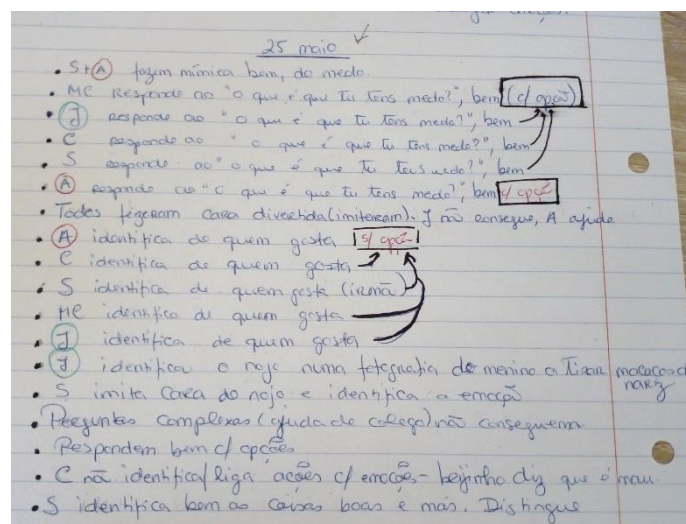 25 maio
• S+A fazem mímica bem, do medo.
• MC Responde ao "o que é que tu tens medo?", bem (c/ opção)
• J responde ao "o que é que tu tens medo?", bem
• C responde ao "o que é que tu tens medo?", bem
• S responde ao "o que é que tu tens medo?", bem
• A responde ao "o que é que tu tens medo?", bem c/ opção
• Todos fizeram cara divertida (imitaram). J não consegue, A ajuda
• A identifica de quem gosta s/ opção
• C identifica de quem gosta
• S identifica de quem gosta (irmã)
• MC identifica de quem gosta
• J identifica de quem gosta
• J identifica o nojo numa fotografia do menino a tirar macacos do nariz
• S imita cara do nojo e identifica a emoção
• Perguntas complexas (ajuda de colega) não conseguem.
• Respondem bem c/ opções
• C não identifica/liga ações c/ emoções - beijinho diz que é mau.
• S identifica bem as coisas boas e más. Distingue